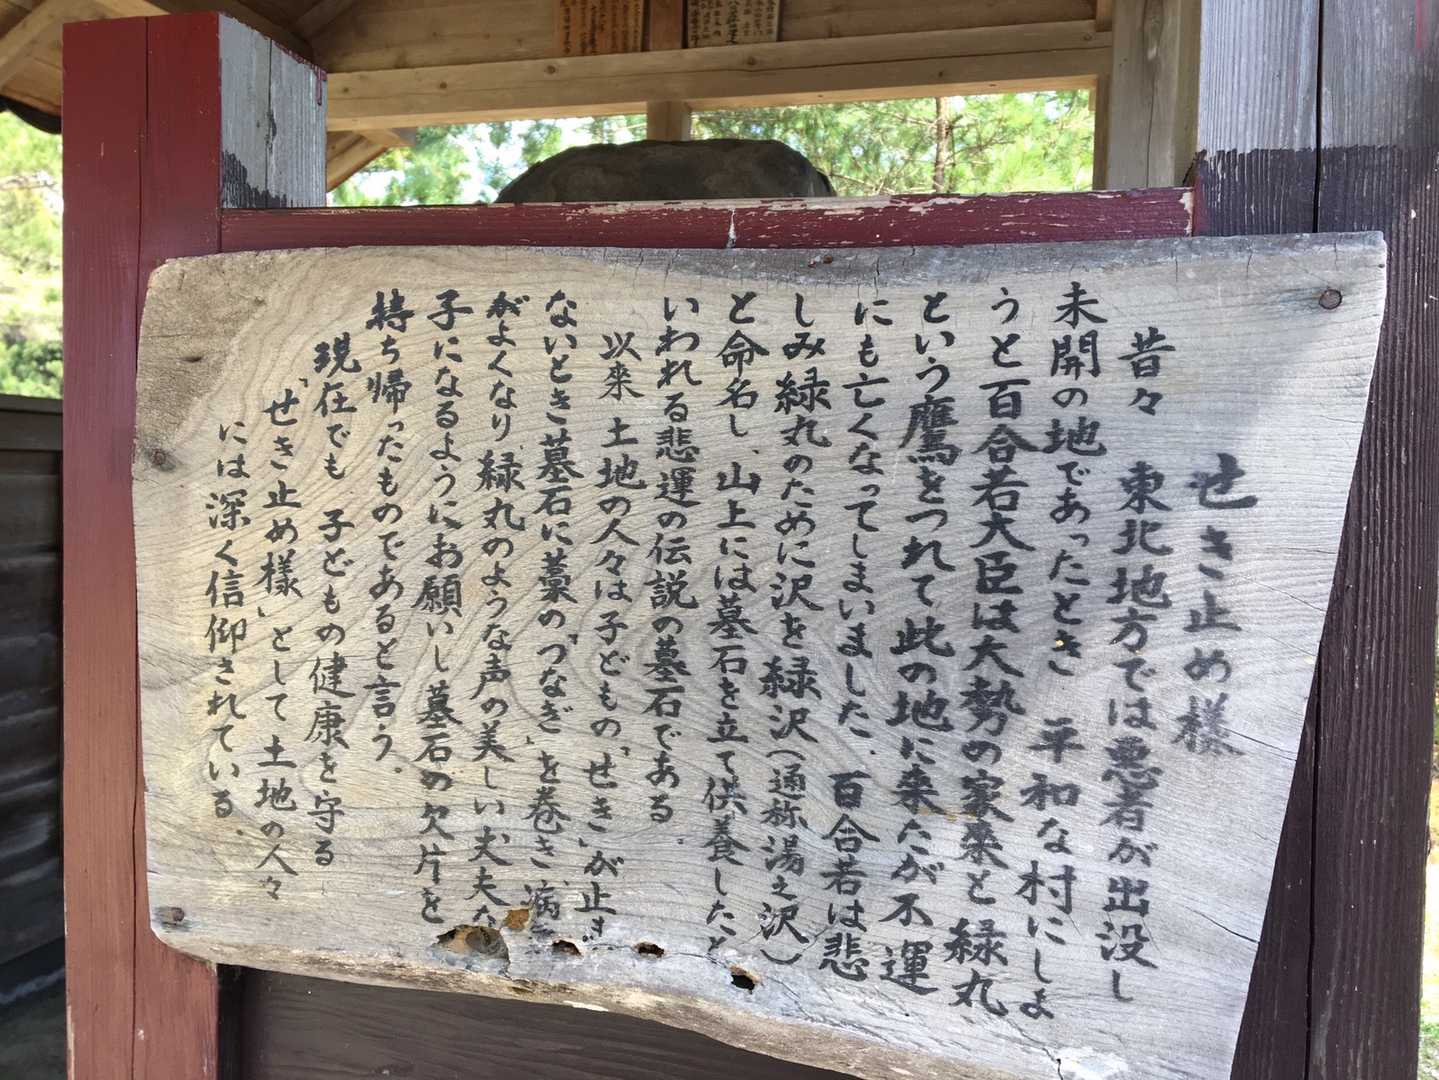 せき止め様
昔々 東北地方では悪者が出没し
未開の地であったとき 平和な村にしよ
うと百合若大臣は大勢の家来と緑丸
という鷹をつれて此の地に来たが不運
にも亡くなってしまいました. 百合若は悲
しみ緑丸のために沢を緑沢(通称湯之沢)
と命名し、山上には墓石を立て供養したと
いわれる悲運の伝説の墓石である.
以来 土地の人々は子どもの「せき」が止ま
ないとき墓石に藁の「つなぎ」を巻き、病
がよくなり緑丸のような声の美しい丈夫な
子になるようにお願いし墓石の欠片を
持ち帰ったものであると言う.
現在でも 子どもの健康を守る
「せき止め様」として土地の人々
には深く信仰されている.